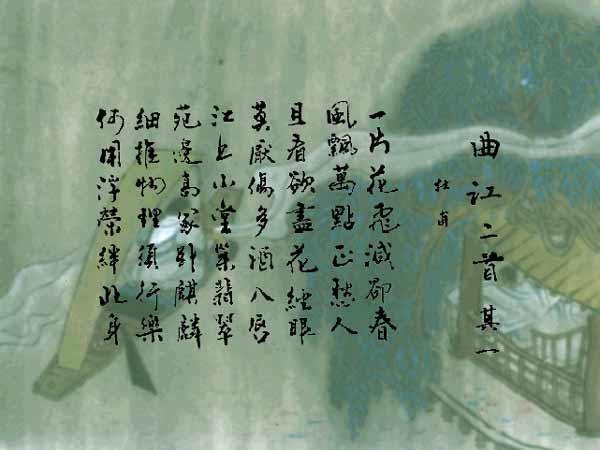 曲江二首 其一
杜甫
一片花飛減卻春
風飄萬點正愁人
且看欲盡花經眼
莫厭傷多酒入唇
江上小堂巢翡翠
苑邊高冢臥麒麟
細推物理須行樂
何用浮榮絆此身